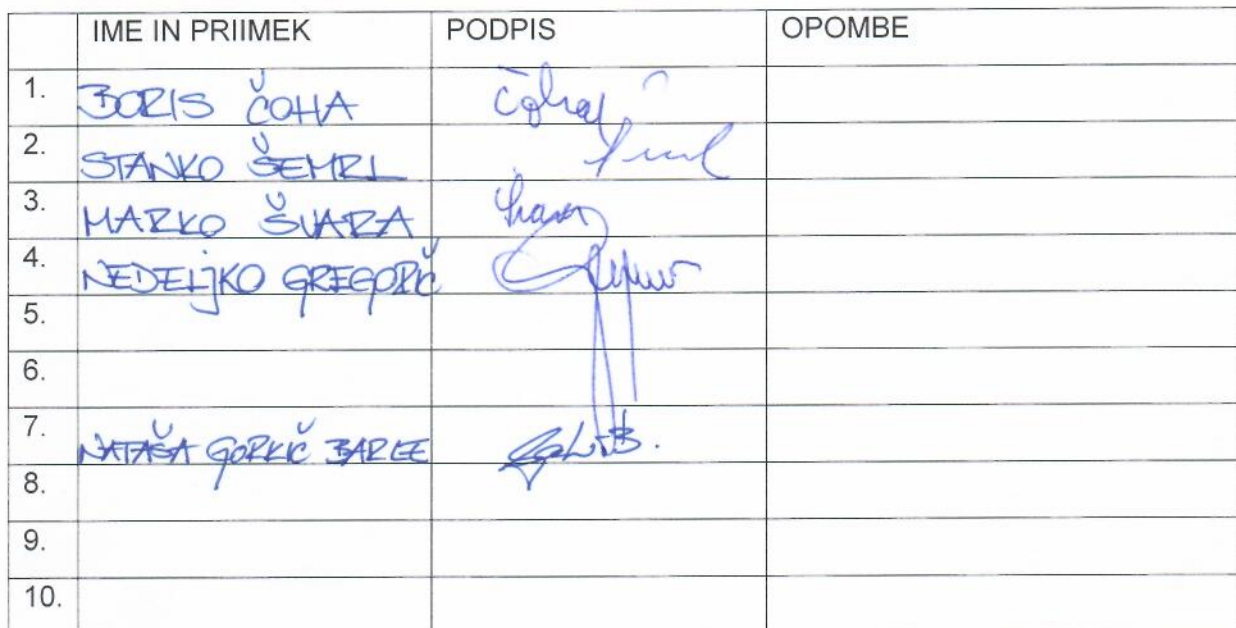 IME IN PRIIMEK PODPIS OPOMBE
1. BORIS ČOHA Čoha
2. STANKO ŠEMRL
3. MARKO ŠVARA
4. NEDELJKO GREGORIČ
5.
6.
7. NATAŠA GORKIČ BARLE
8.
9.
10.